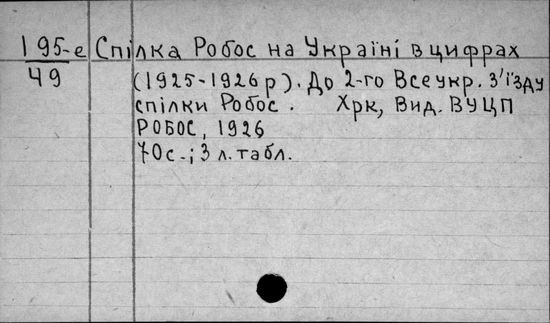 195-е Спілка Робос на Україні в цифрах
49 (1925-1926р). До 2-го Всеукр. З'їзду
спілки Робос. Хрк, Вид. ВУЦП
РОБОС, 1926
70с. і 3 л. табл.